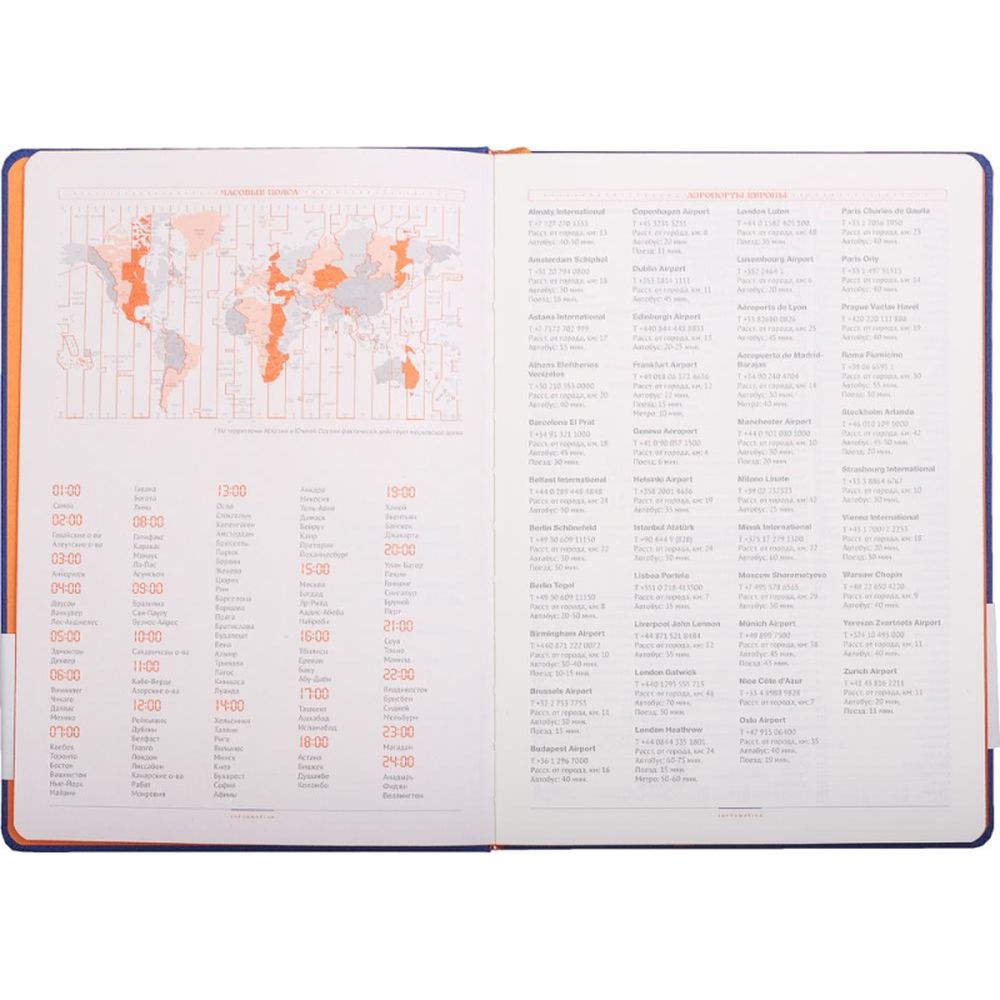 ЧАСОВЫЕ ПОЯСА
* На территории Абхазии и Южной Осетии фактически действует московское время
01:00
Самоа
02:00
Гавайские о-ва
Алеутские о-ва
03:00
Анкоридж
04:00
Доусон
Ванкувер
Лос-Анджелес
05:00
Эдмонтон
Денвер
06:00
Виннипег
Чикаго
Даллас
Мехико
07:00
Квебек
Торонто
Бостон
Вашингтон
Нью-Йорк
Майами
Гавана
Богота
Лима
08:00
Галифакс
Каракас
Манаус
Ла-Пас
Асунсьон
09:00
Бразилиа
Сан-Паулу
Буэнос-Айрес
10:00
Сандвичевы о-ва
11:00
Кабо-Верде
Азорские о-ва
12:00
Рейкьявик
Дублин
Белфаст
Глазго
Лондон
Лиссабон
Канарские о-ва
Рабат
Монровия
13:00
Осло
Стокгольм
Копенгаген
Амстердам
Брюссель
Париж
Берлин
Женева
Цюрих
Рим
Барселона
Варшава
Прага
Братислава
Будапешт
Вена
Алжир
Триполи
Лагос
Киншаса
Луанда
14:00
Хельсинки
Таллин
Рига
Вильнюс
Минск
Киев
Бухарест
София
Афины
Анкара
Никосия
Тель-Авив
Дамаск
Бейрут
Каир
Претория
Йоханнесбург
15:00
Москва
Багдад
Эр-Рияд
Аддис-Абеба
Найроби
16:00
Тбилиси
Ереван
Баку
Абу-Даби
17:00
Ташкент
Ашхабад
Исламабад
18:00
Астана
Бишкек
Душанбе
Коломбо
19:00
Ханой
Вьентьян
Бангкок
Джакарта
20:00
Улан-Батор
Пекин
Гонконг
Сингапур
Бруней
Перт
21:00
Сеул
Токио
Манила
22:00
Владивосток
Брисбен
Сидней
Мельбурн
23:00
Магадан
24:00
Анадырь
Фиджи
Веллингтон
information
АЭРОПОРТЫ ЕВРОПЫ
Almaty International
T +7 727 270 3333
Расст. от города, км: 13
Автобус: 40-50 мин.
Amsterdam Schiphol
T +31 20 794 0800
Расст. от города, км: 18
Автобус: 30 мин.
Поезд: 16 мин.
Astana International
T +7 7172 702 999
Расст. от города, км: 17
Автобус: 15 мин.
Athens Eleftherios
Venizelos
T +30 210 353 0000
Расст. от города, км: 20
Автобус: 40 мин.
Barcelona El Prat
T +34 91 321 1000
Расст. от города, км: 18
Автобус: 45 мин.
Поезд: 30 мин.
Belfast International
T +44 0 289 448 4848
Расст. от города, км: 24
Автобус: 30 мин.
Berlin Schönefeld
T +49 30 609 11150
Расст. от города, км: 22
Автобус: 60 мин.
Поезд: 30 мин.
Berlin Tegel
T +49 30 609 11150
Расст. от города, км: 8
Автобус: 20-35 мин.
Birmingham Airport
T +44 0 871 222 0072
Расст. от города, км: 10
Автобус: 30-40 мин.
Поезд: 10-15 мин.
Brussels Airport
T +32 2 753 7753
Расст. от города, км: 11
Автобус: 30 мин.
Поезд: 15 мин.
Budapest Airport
T +36 1 296 7000
Расст. от города, км: 16
Автобус: 40 мин.
Copenhagen Airport
T +45 3231 3231
Расст. от города, км: 8
Автобус: 20 мин.
Поезд: 11 мин.
Dublin Airport
T +353 1814 1111
Расст. от города, км: 11
Автобус: 45 мин.
Edinburgh Airport
T +44 0 844 448 8833
Расст. от города, км: 13
Автобус: 20-25 мин.
Frankfurt Airport
Расст. от города, км: 12
Автобус: 22 мин.
Поезд: 15 мин.
Метро: 10 мин.
Geneva Aéroport
Расст. от города, км: 4
Поезд: 6 мин.
Helsinki Airport
T +358 2001 4636
Расст. от города, км: 19
Автобус: 35 мин.
Istanbul Atatürk
Расст. от города, км: 24
Lisboa Portela
T +351 0 218 413500
Расст. от города, км: 7
Автобус: 35 мин.
Liverpool John Lennon
T +44 871 521 8484
Расст. от города, км: 12
London Gatwick
T +44 0 1293 555 715
Расст. от города, км: 46
Автобус: 70 мин.
Поезд: 30 мин.
London Heathrow
T +44 0844 335 1801
Расст. от города, км: 24
Автобус: 60-75 мин.
Поезд: 15 мин.
Метро: 50-60 мин.
London Luten
T +44 0 1582 405 100
Расст. от города, км: 48
Поезд: 35 мин.
Luxembourg Airport
Расст. от города, км: 6
Автобус: 30 мин.
Aéroports de Lyon
T +33 82680 0826
Расст. от города, км: 25
Автобус: 45 мин.
Aeropuerto de Madrid-
Barajas
Расст. от города, км: 14
Автобус: 30 мин.
Метро: 40 мин.
Manchester Airport
Расст. от города, км: 10
Автобус: 30 мин.
Поезд: 20 мин.
Milano Linate
T +39 02 232323
Расст. от города, км: 42
Автобус: 25 мин.
Minsk International
T +375 17 279 1300
Расст. от города, км: 42
Автобус: 60 мин.
Moscow Sheremetyevo
T +7 495 578 6565
Расст. от города, км: 29
Автобус: 50 мин.
Münich Airport
Расст. от города, км: 38
Автобус: 45 мин.
Поезд: 45 мин.
Nice Côte d'Azur
Расст. от города, км: 7
Oslo Airport
T +47 915 06400
Расст. от города, км: 35
Автобус: 40 мин.
Поезд: 19 мин.
Paris Charles de Gaulle
Расст. от города, км: 23
Автобус: 40 мин.
Paris Orly
Расст. от города, км: 14
Автобус: 40 мин.
Prague Vaclav Havel
T +420 220 111 888
Расст. от города, км: 19
Автобус: 40 мин.
Roma Fiumicino
Расст. от города, км: 30
Автобус: 55 мин.
Поезд: 30 мин.
Stockholm Arlanda
Расст. от города, км: 42
Автобус: 45-50 мин.
Поезд: 20 мин.
Strasbourg International
T +33 3 8864 6767
Расст. от города, км: 10
Автобус: 30 мин.
Vienna International
Расст. от города, км: 18
Автобус: 20 мин.
Поезд: 30 мин.
Warsaw Chopin
T +48 22 650 4220
Расст. от города, км: 9
Автобус: 40 мин.
Yerevan Zvartnots Airport
T +374 10 493 000
Расст. от города, км: 11
Автобус: 40 мин.
Zurich Airport
T +41 43 816 2211
Расст. от города, км: 11
Автобус: 20 мин.
Поезд: 11 мин.
information